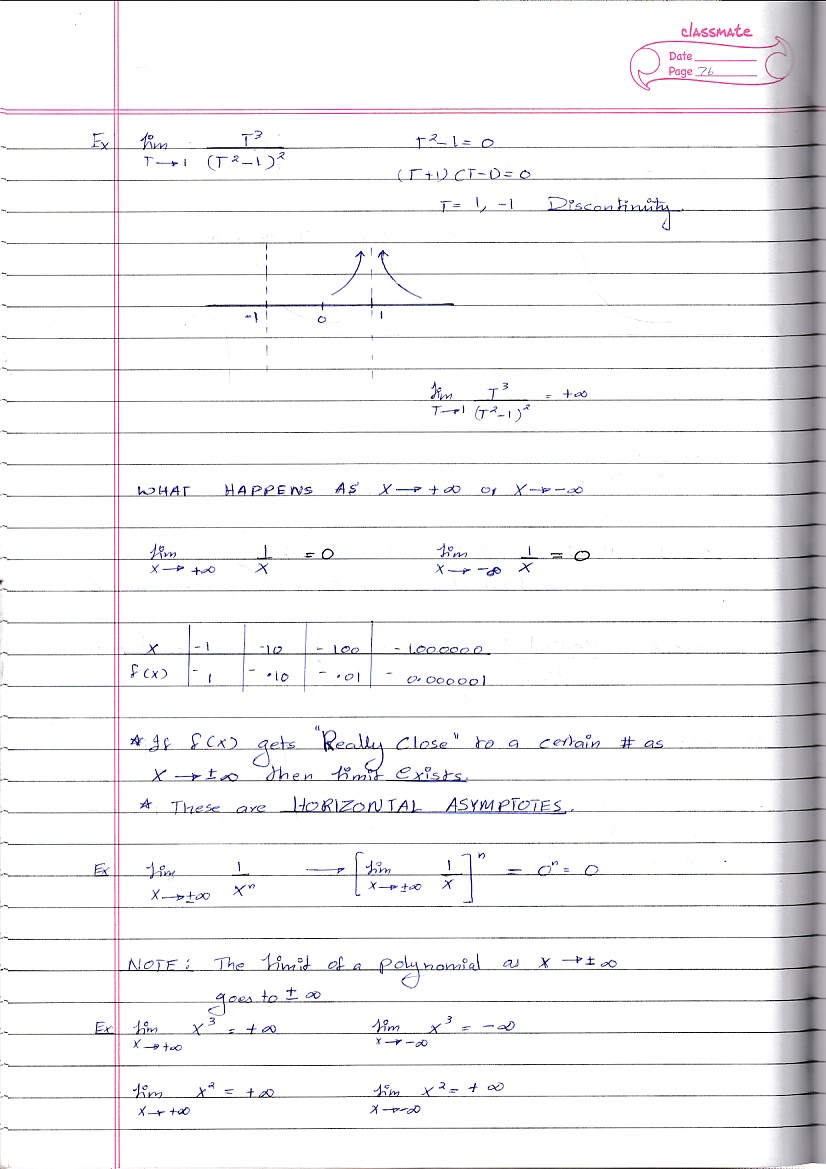 classmate
Date
Page 76
Ex lim T→1 T³/(T²-1)² T²-1=0
(T+1)(T-1)=0
T= 1, -1 Discontinuity.
-1 0 1
lim T→1 T³/(T²-1)² = +∞
WHAT HAPPENS AS X→+∞ or X→-∞
lim X→+∞ 1/X =0 lim X→-∞ 1/X = 0
X -1 -10 -100 -1000000
f(x) -1 -.10 -.01 -0.000001
* If f(x) gets "Really Close" to a certain # as
X→±∞ then limit exists.
* These are HORIZONTAL ASYMPTOTES.
Ex lim X→±∞ 1/Xⁿ → [lim X→±∞ 1/X]ⁿ = 0ⁿ = 0
NOTE: The limit of a polynomial as X→±∞
goes to ±∞
Ex lim X→+∞ X³ = +∞ lim X→-∞ X³ = -∞
lim X→+∞ X² = +∞ lim X→-∞ X² = +∞